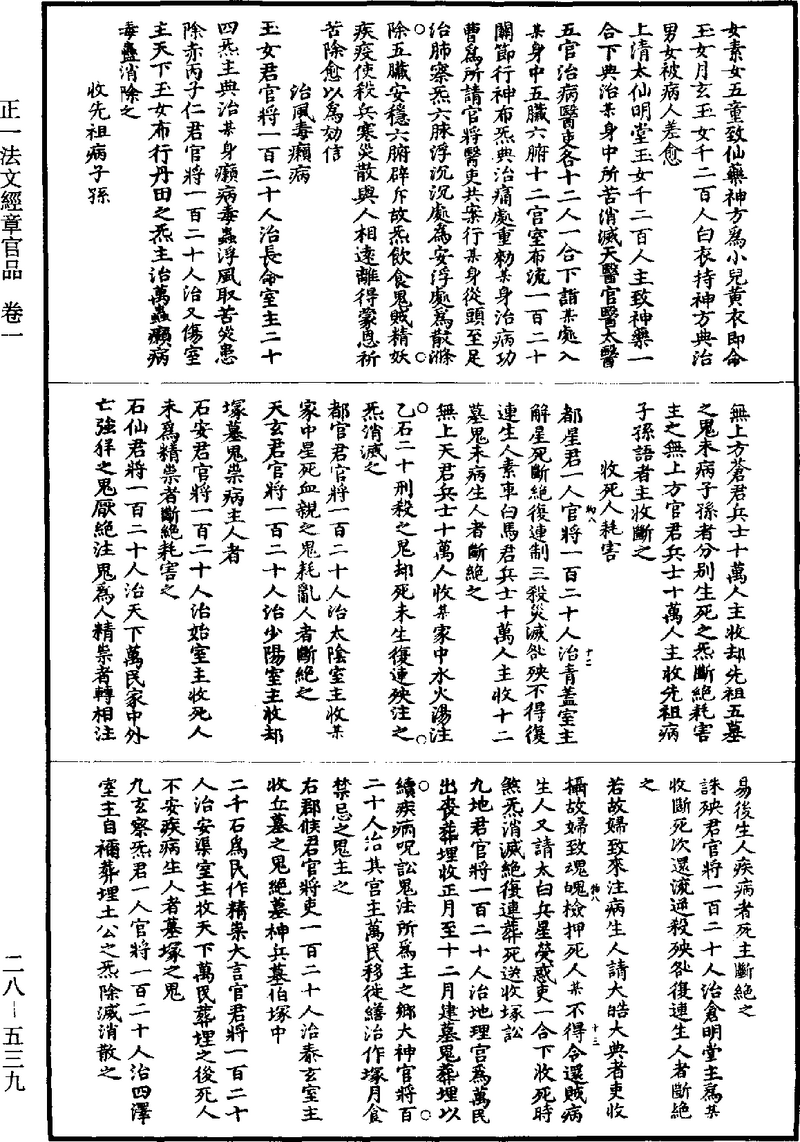 女素女五童致仙藥神方為小兒黄衣即命
玉女月玄玉女千二百人白衣持神方典治
男女被病人差愈
上清太仙明堂玉女千二百人主致神藥一
合下典治某身中所苦消滅天醫官醫太醫
五官治病醫吏各十二人一合下詣某處入
某身中五臟六腑十二官室布流一百二十
關節行神布炁典治痛處重勑某身治病功
曹為所請官將醫吏共案行某身從頭至足
治肺察炁六脉浮沉沉處為安浮處為散滌
除五臟安穩六腑辟斥故炁飲食鬼賊精妖
疾疫使秩兵寒災散與人相遠離得蒙恩祈
苦除愈以為効信
治風毒癩病
玉女君官將一百二十人治長命室主二十
四炁主典治某身癩病毒蟲浮風取苦災患
除赤丙子仁君官將一百二十人治又傷室
主天下玉女布行丹田之炁主治萬蟲癩病
毒蠱消除之
收先祖病子孫
無上方蒼君兵士十萬人主收却先祖五墓
之鬼来病子孫者分别生死之炁斷絕耗害
主之無上方官君兵士十萬人主收先祖病
子孫語者主收斷之
收死人耗害
都星君一人官將一百二十人治青蓋室主
解星死斷絕復連制三殺災滅咎殃不得復
連生人素車白馬君兵士十萬人主收十二
墓鬼来病生人者斷絕之
無上天君兵士十萬人收某家中水火湯注
乙石二十刑殺之鬼却死未生復連殃注之
炁消滅之
都官君官將一百二十人治太陰室主收某
家中星死血親之鬼耗亂人者斷絕之
天玄君官將一百二十人治少陽室主收却
塚墓鬼祟病主人者
石安君官將一百二十人治始室主收死人
来為精祟者斷絕耗害之
石仙君將一百二十人治天下萬民家中外
亡強殍之鬼厭絕注鬼為人精祟者轉相注
易後生人疾病者死主斷絕之
誅殃君官將一百二十人治倉明堂主為某
收斷死次還流逆殺殃咎復連生人者斷絕
之
若故婦致来注病生人請大皓大典者吏收
攝故婦致魂魄檢押死人某不得令還賊病
生人又請太白兵星熒惑吏一合下收死時
煞炁消滅絕復連葬死送收塚訟
九地君官將一百二十人治地理宫為萬民
出喪葬埋收正月至十二月建墓鬼葬埋以
續疾病呪訟鬼注所為主之鄉大神官將百
二十人治其宫主萬民移徙繕治作塚月食
禁忌之鬼主之
右郡候君官將吏一百二十人治泰玄室主
收丘墓之鬼絕墓神兵墓伯塚中
二千石為民作精祟大言官君將一百二十
人治安渠室主收天下萬民葬埋之後死人
不安疾病生人者墓塚之鬼
九玄察炁君一人官將一百二十人治四澤
室主自禰葬埋土公之炁除滅消散之
正一法文經章官品　卷一
二八－五三九